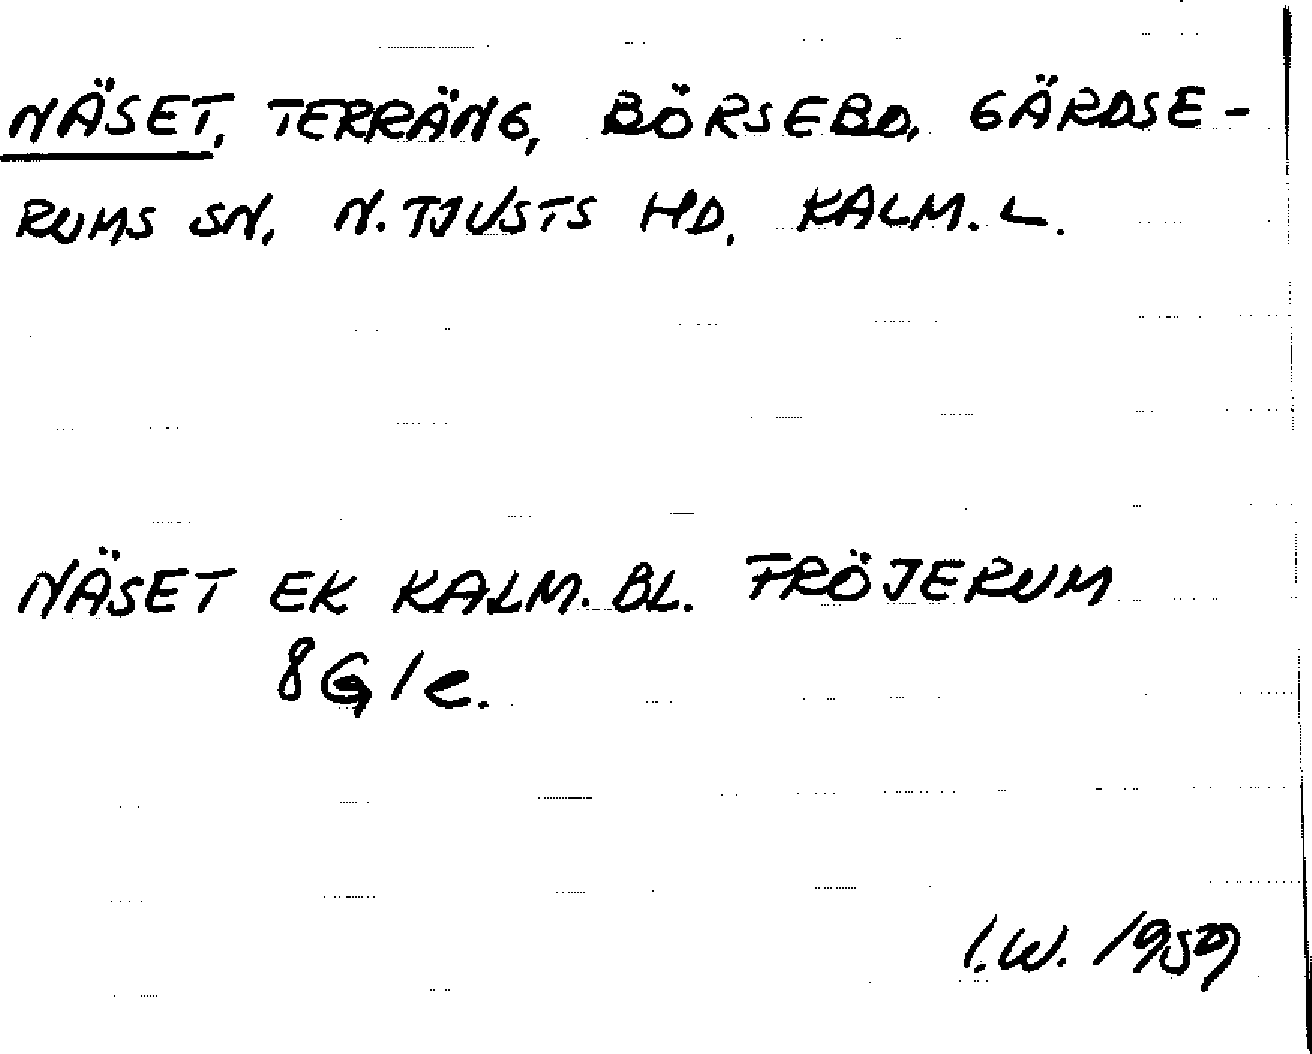 NÄSET, TERRÄNG, BÖRSEBO, GÄRDSE-
RUMS SN, N. TJUSTS HD, KALM. L.
NÄSET EK KALM. BL. FRÖJERUM
8G1e.
I.W. 1959